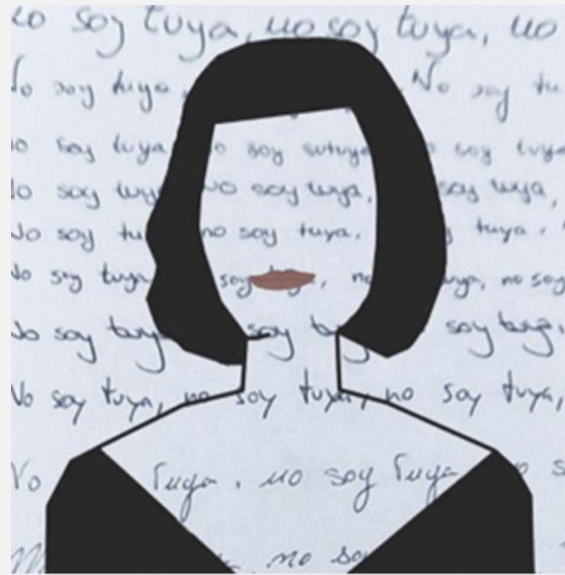 no soy tuya, no soy tuya, no
No soy tuya, No soy tu
no soy tuya no soy tuya
No soy tuya no soy tuya, soy tuya,
No soy tu no soy tuya. tuya.
No soy tuya soy tuya, no tuya, no soy
No soy tuya soy tu soy tuya.
No soy tuya, no soy tuya, no soy tuya,
No tuya, no soy tuya no s
no soy